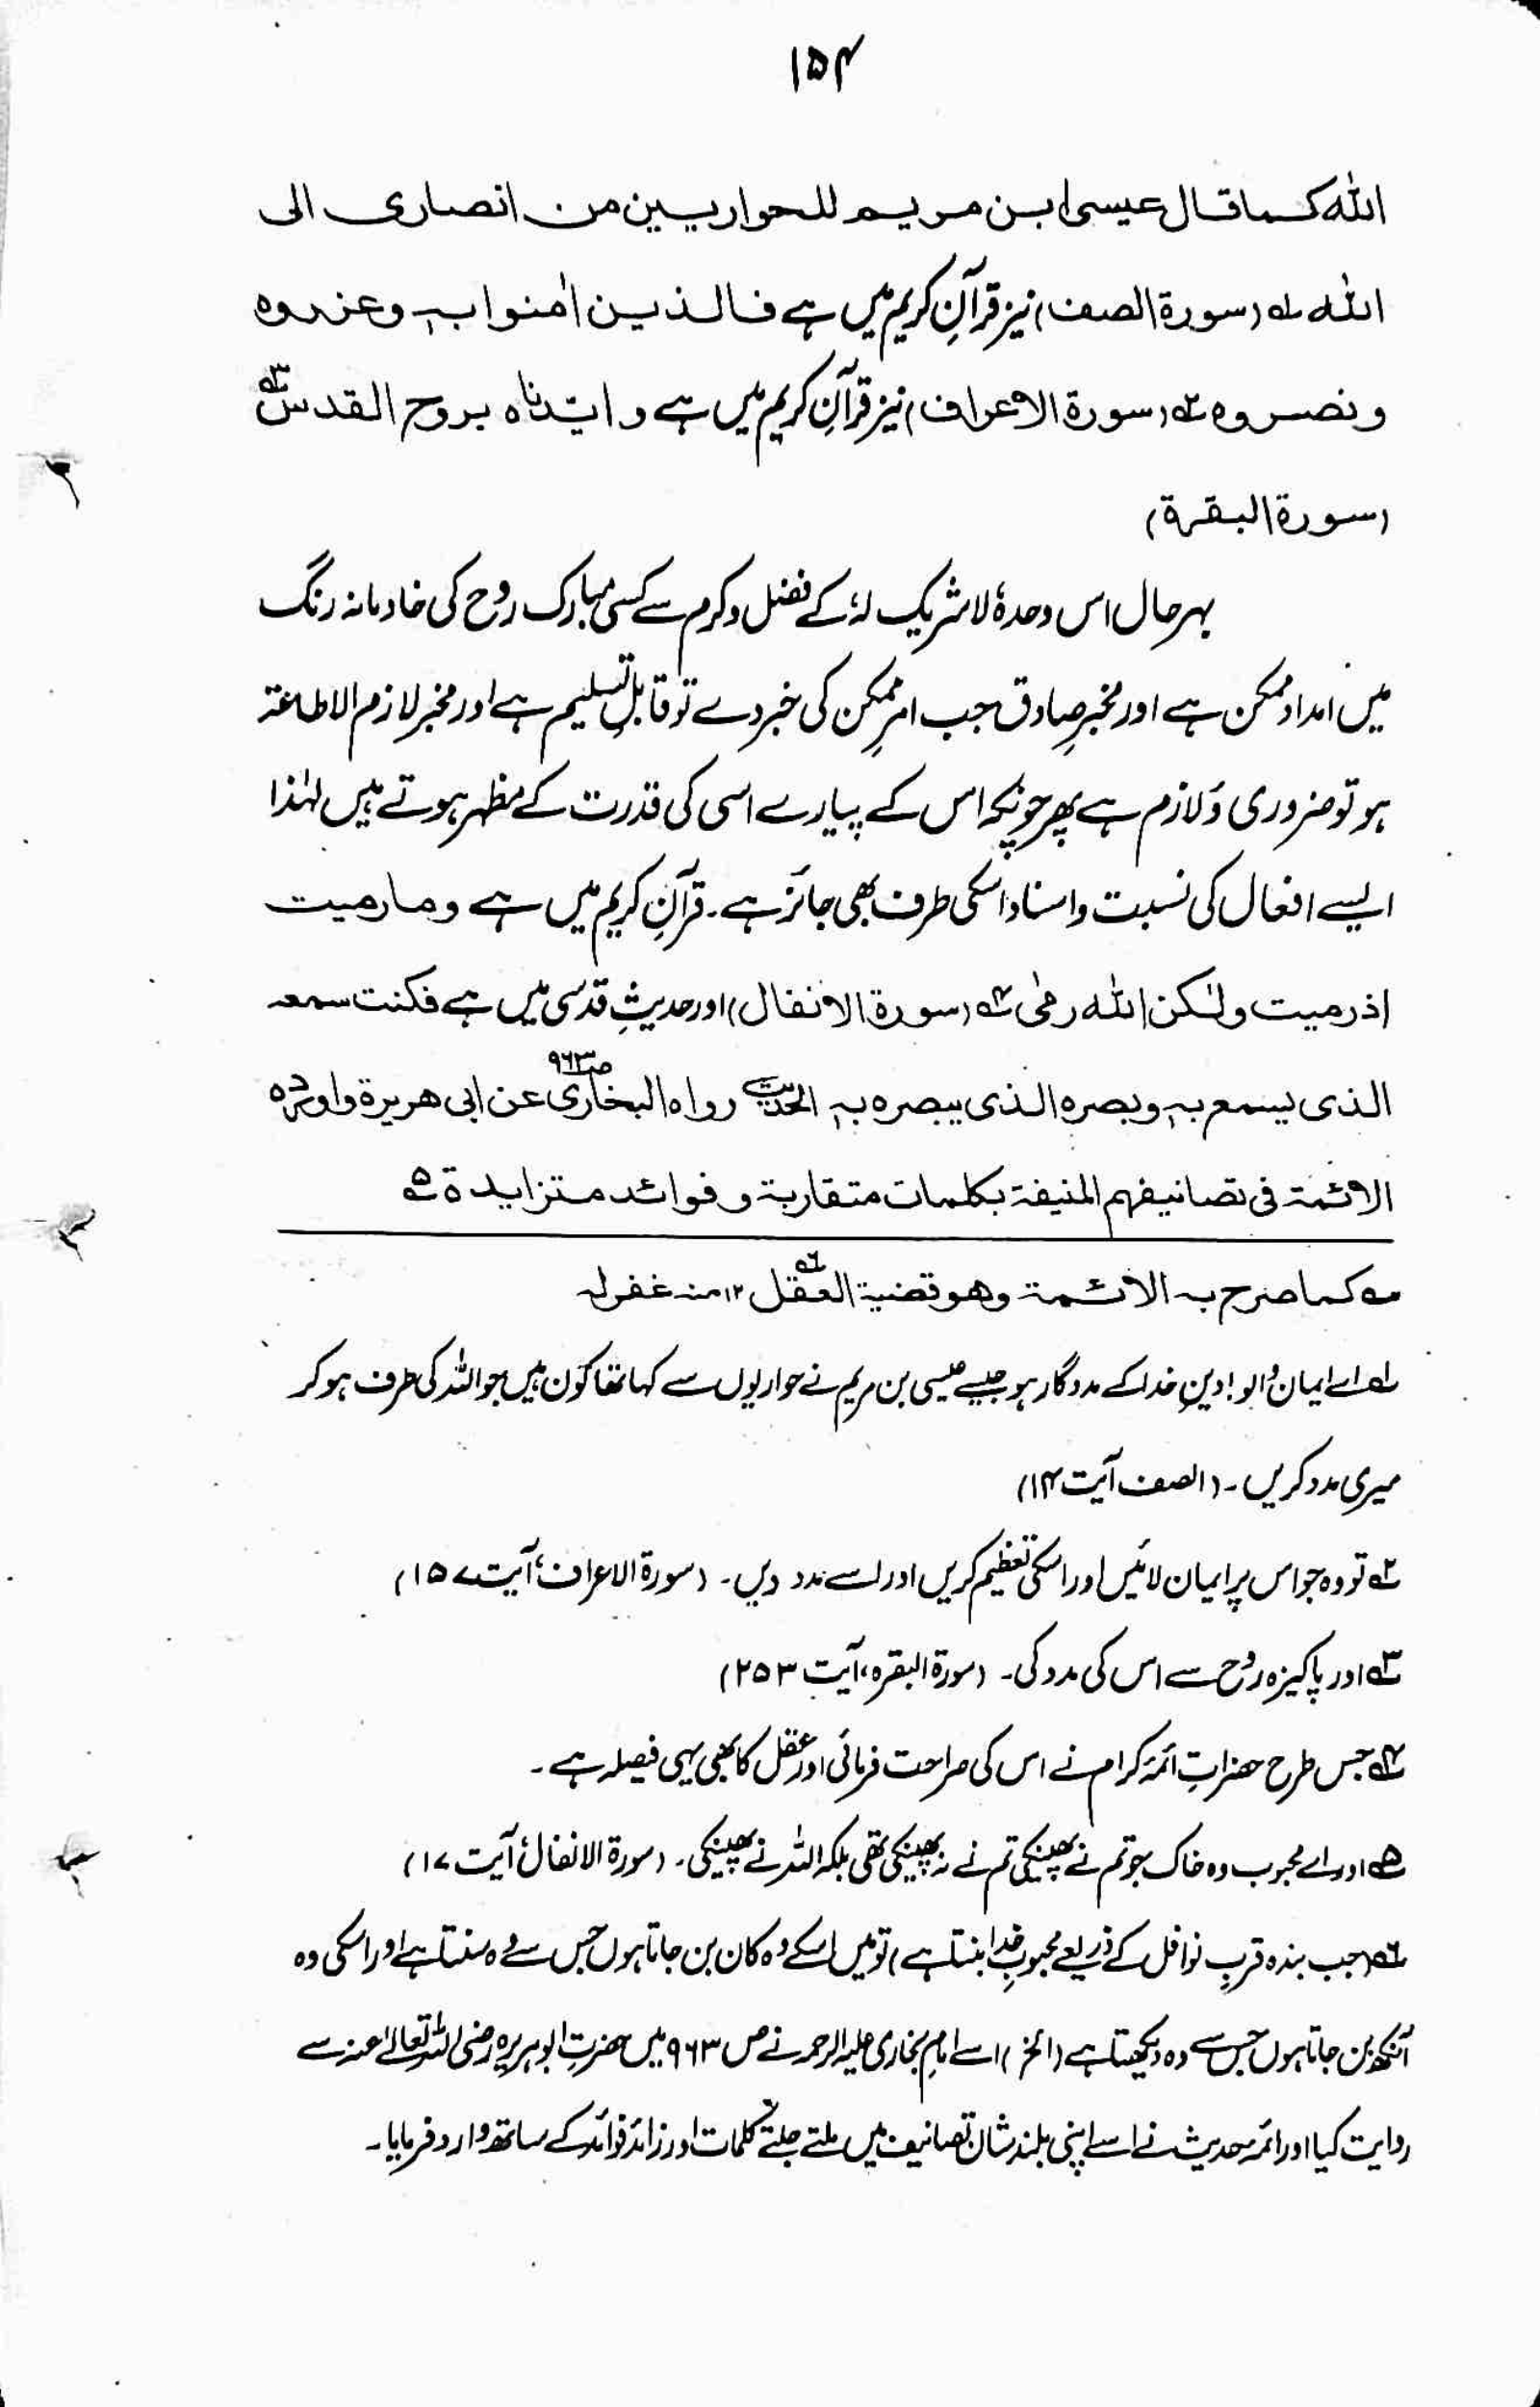 ۱۵۴
اللہ کما قال عیسی ابن مریم للحواریین من انصاری الی
اللہ ؎۱ (سورۃ الصف) نیز قرآنِ کریم میں ہے فالذین اٰمنوا بہٖ وعزروہ
ونصروہ ؎۲ (سورۃ الاعراف) نیز قرآنِ کریم میں ہے و ایّدناہ بروح القدس ؎۳
(سورۃ البقرۃ)
بہرحال اس وحدہٗ لاشریک لہٗ کے فضل وکرم سے کسی مبارک روح کی خادمانہ رنگ
میں امداد ممکن ہے اور مخبرِ صادق جب امرِ ممکن کی خبر دے تو قابلِ تسلیم ہے اور مخبر لازم الاطاعۃ
ہو تو ضروری ولازم ہے پھر چونکہ اس کے پیارے اسی کی قدرت کے مظہر ہوتے ہیں لہٰذا
ایسے افعال کی نسبت واسناد اسکی طرف بھی جائز ہے۔ قرآنِ کریم میں ہے ومارمیت
اذرمیت ولٰکن اللہ رمٰی ؎۴ (سورۃ الانفال) اور حدیثِ قدسی میں ہے فکنت سمعہ
الذی یسمع بہٖ وبصرہ الذی یبصرہ بہٖ الحدیث رواہ البخاری ص۹۶۳ عن ابی ھریرۃ واوردہ
الائمۃ فی تصانیفہم المنیفۃ بکلمات متقاربۃ و فوائد متزایدۃ ؎۵
؎ کما صرح بہ الائمۃ وھو قضیۃ العقل ؎۶ ۱۲ منہ غفرلہ
؎۱ اے ایمان والو! دینِ خدا کے مددگار ہو جیسے عیسی بن مریم نے حواریوں سے کہا تھا کون ہیں جو اللہ کی طرف ہو کر
میری مدد کریں۔ (الصف آیت ۱۴)
؎۲ تو وہ جو اس پر ایمان لائیں اور اسکی تعظیم کریں اور اسے مدد دیں۔ (سورۃ الاعراف، آیت ۱۵۷)
؎۳ اور پاکیزہ روح سے اس کی مدد کی۔ (سورۃ البقرہ، آیت ۲۵۳)
؎۴ جس طرح حضراتِ ائمۂ کرام نے اس کی صراحت فرمائی اور عقل کا بھی یہی فیصلہ ہے۔
؎۵ اور اے محبوب وہ خاک جو تم نے پھینکی تم نے نہ پھینکی تھی بلکہ اللہ نے پھینکی۔ (سورۃ الانفال، آیت ۱۷)
؎۶ (جب بندہ قربِ نوافل کے ذریعے محبوبِ خدا بنتا ہے) تو میں اسکے وہ کان بن جاتا ہوں جس سے وہ سنتا ہے اور اسکی وہ
آنکھ بن جاتا ہوں جس سے وہ دیکھتا ہے (الخ) اسے امام بخاری علیہ الرحمہ نے ص ۹۶۳ میں حضرتِ ابوہریرہ رضی اللہ تعالیٰ عنہ سے
روایت کیا اور ائمہ حدیث نے اسے اپنی بلند شان تصانیف میں ملتے جلتے کلمات اور زائد فوائد کے ساتھ وارد فرمایا۔